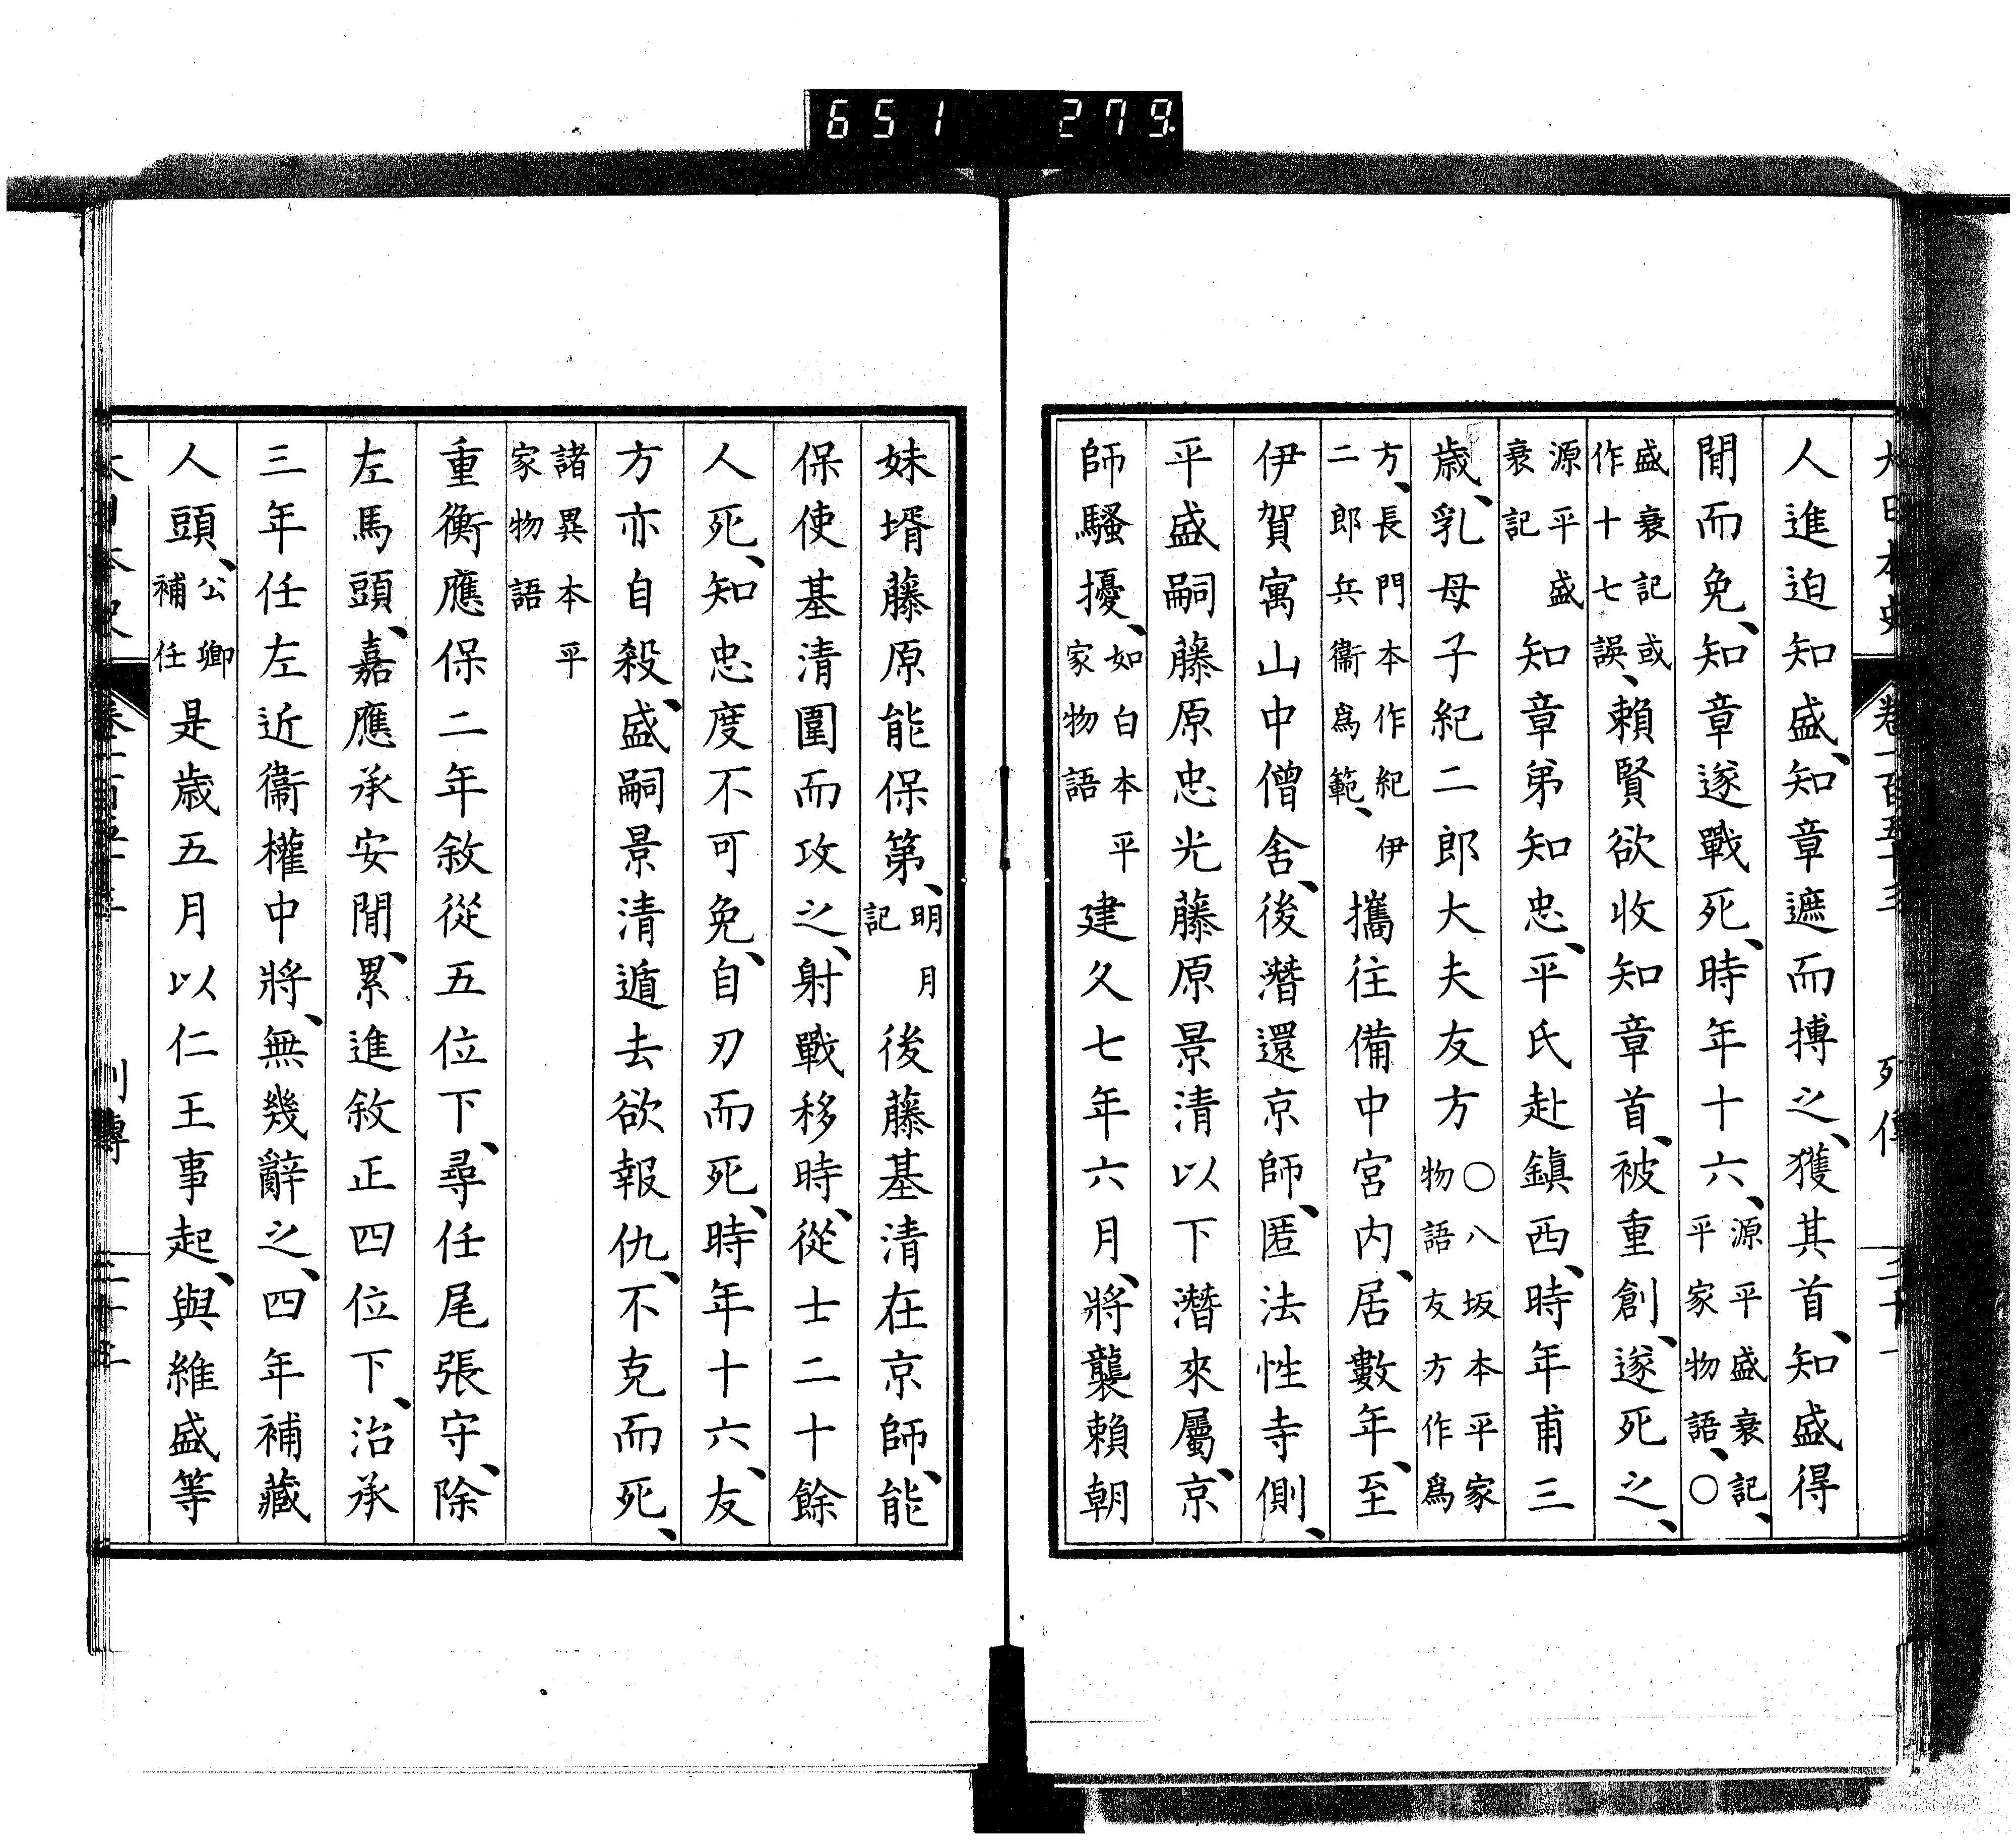 大日本史 卷一百五十三 列傳 三十一
人進迫知盛、知章遮而搏之、獲其首、知盛得
閒而免、知章遂戰死、時年十六、源平盛衰記、平家物語、〇
盛衰記或作十七誤、賴賢欲收知章首、被重創、遂死之、
源平盛衰記知章弟知忠、平氏赴鎮西、時年甫三
歳、乳母子紀二郎大夫友方〇八坂本平家物語友方作爲
方、長門本作紀伊二郎兵衞爲範、攜往備中宮内、居數年、至
伊賀寓山中僧舍、後潛還京師、匿法性寺側、
平盛嗣藤原忠光藤原景清以下潛來屬、京
師騷擾、如白本平家物語建久七年六月、將襲賴朝
妹壻藤原能保第、明月記後藤基清在京師、能
保使基清圍而攻之、射戰移時、從士二十餘
人死、知忠度不可免、自刃而死、時年十六、友
方亦自殺、盛嗣景清遁去欲報仇、不克而死、
諸異本平家物語
重衡應保二年敘從五位下、尋任尾張守、除
左馬頭、嘉應承安閒、累進敘正四位下、治承
三年任左近衞權中將、無幾辭之、四年補藏
人頭、公卿補任是歳五月以仁王事起、與維盛等
大日本史 卷一百五十三 列傳
651 279